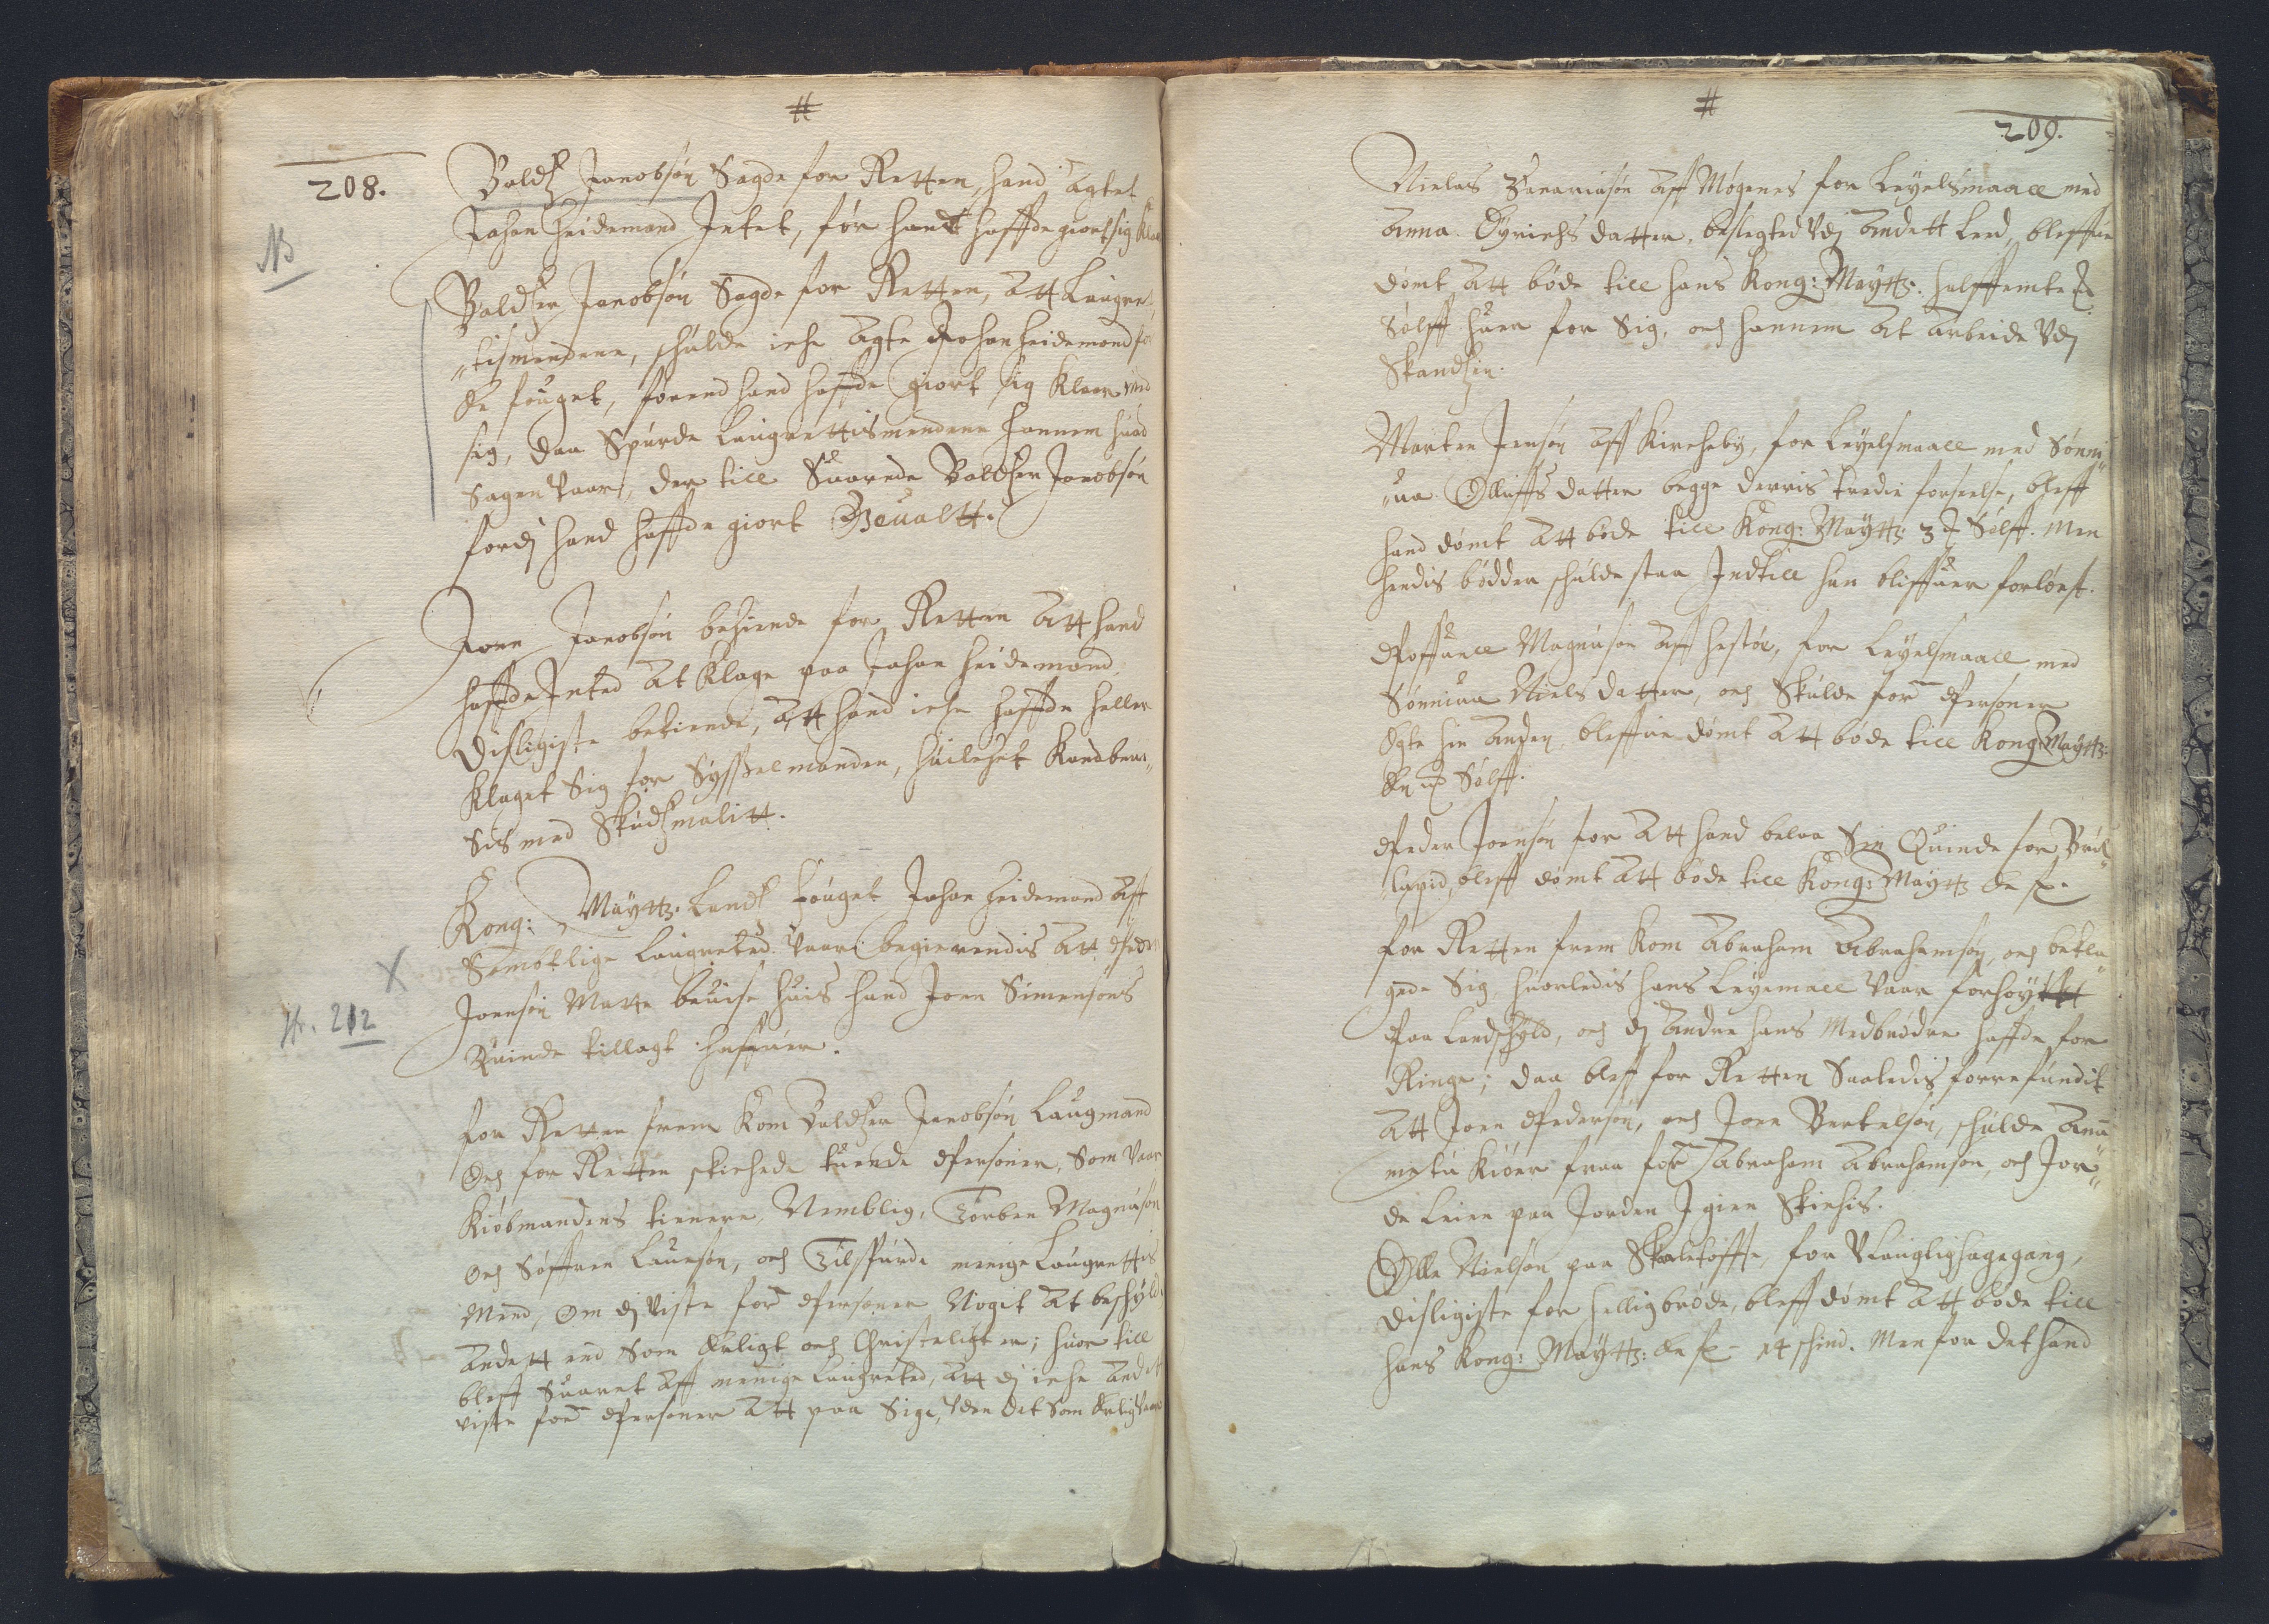 #
208.
Baldtz Jacobsøn Sagde for Retten, hand agtet
Johan Heidemand Intet, før hand haffde giort sig Klar
NB
Baldtzer Jacobsøn Sagde for Retten, att Laugret,
"tismendene, schulde iche agte Johan Heidemand for
En fouget, førend hand haffde giort sig Klaar med
sig, daa Spurde Laugrettismendene hannem huad
Sagen vaar, der till Suarede Baldtzer Jacobsøn
fordj hand haffde giort Geualtt.
Joen Jacobsøn bekiende for Retten att hand
haffde Inted at Klage paa Johan Heidemand
disligiste bekiende, att hand iche haffde heller
Klaget Sig for Sysselmanden, huilchet Kand beui"
sis med Skudtzmalitt.
Kong: Maytts. Landtz fouget Johan Heidemand aff
Semptlige Laugretted vaar begierendis att Peder
X
Joensøn Motte beuise huis hand Joen Simensøns
H. 212
Quinde tillagt haffuer.
for Retten frem Kom Baldtzer Jacobsøn Laugmand
Och for Retten skichede tuende Personer, Som vaar
Kiøbmandens tienere, Nemblig, Torben Magnusøn
Och Søffren Laursøn, och Tilspurde menige Laugrettis
Mend, Om dj viste for: Personer Nogit at beschylde
andett end Som Ærligt och Christeligt er; huor till
bleff Suaret aff menige Laugretted, att dj iche andet
viste for: Personer att paa Sige, uden det Som Ærlig vaar
#
209.
Nielas Zacariasøn aff Møgenes for Leyelsmaall med
Anna Dyrichs datter, beslegted udj andett Leed, bleffue
dømt att bøde till hans Kong: Maytts: halffemte
Sølff huer for Sig, och hannem at arbeide udj
Skandtzen.
Morten Jensøn aff Kircheby, for Leyelsmaall med Sønni"
"ua Olluffs datter begge derris tredie forseelse, bleff
hand dømt att bøde till Kong: Maytts 3 Sølff. Men
hendis bødder schulde staa Indtill hun bliffuer forløest.
Poffuell Magnusøn aff Hestøe, for Leyelsmaall med
Sønniua Niels datter, och Skulde for: Personer
Egte hin anden, bleffue dømt att bøde till Kong: Maytts:
En Sølff.
Peder Joensøn for att hand belaa Sin Quinde for Brul"
"lupid, bleff dømt att bøde till Kong: Maytts En
for Retten frem Kom Abraham Abrahamsøn, och bekla"
gede Sig, huorledis hans Leyemaell vaar forhøytt
Paa Landschyld, och dj andre hans Medbrødre haffde for
Ringe; daa bleff for Retten Saaledis forrefundit
att Joen Pedersøn, och Joen Bertelsøn, schulde anna"
me tu Kiøer fraa for: Abraham Abrahamsøn, och Jor"
de Leien paa Jorden I gien Skiehis.
Olle Nielsøn paa Skaaletofte, for Ulauglig hagegang,
disligiste for hellig brøde, bleff dømt att bøde till
hans Kong: Maytts: En 14 schind. Men for det hand